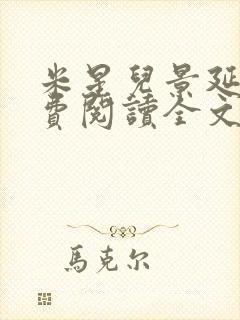 米星兒景延
費閱讀全文
馬克尔